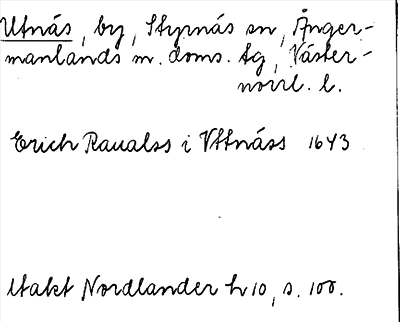 Utnäs, by, Styrnäs sn, Ånger-
manlands m. doms. tg, Väster-
norrl. l.
Erich Raualss i Vttnäss 1643
Utakt Nordlander h 10, s. 100.